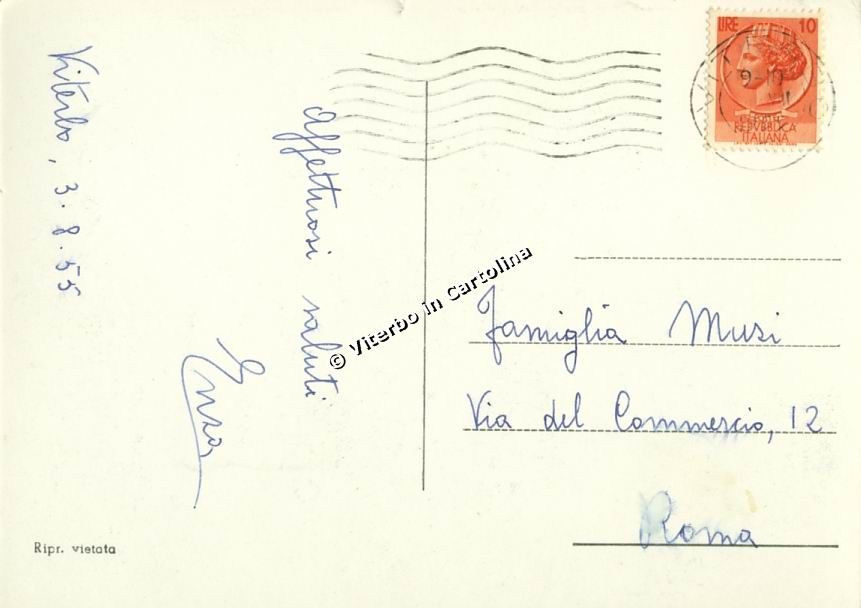 Viterbo, 3.8.55
Affettuosi saluti
Enza
Ripr. vietata
© Viterbo in Cartolina
LIRE 10
REPVBBLICA
ITALIANA
9-10
Famiglia Musi
Via del Commercio, 12
Roma